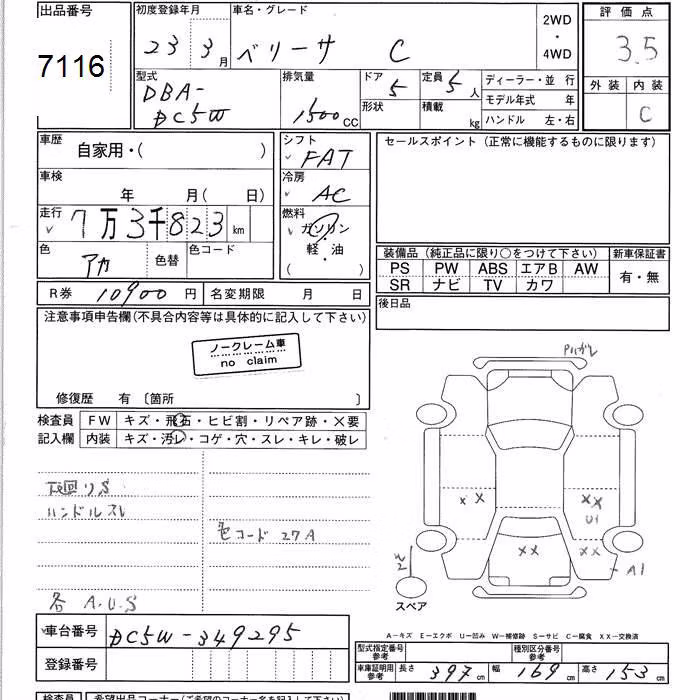 出品番号 初度登録年月 車名・グレード 2WD・4WD 評価点
7116 23 3月 ベリーサ C 3.5
型式 DBA-DC5W 排気量 1500CC ドア 5 形状 定員 5人 積載 kg
ディーラー・並 行
モデル年式 年
ハンドル 左・右
外装 内装 C
車歴 自家用・( )
シフト FAT
セールスポイント (正常に機能するものに限ります)
車検 年 月( 日)
冷房 AC
走行 7万3千823km
燃料 ガソリン・軽油 ( )
色 アカ 色替 色コード
装備品 (純正品に限り○をつけて下さい) 新車保証書
PS PW ABS エアB AW 有・無
SR ナビ TV カワ
R券 10900円 名変期限 月 日
後日品
注意事項申告欄(不具合内容等は具体的に記入して下さい)
ノークレーム車
no claim
修復歴 有 〔箇所 〕
検査員 FW キズ・飛石・ヒビ割・リペア跡・×要
記入欄 内装 キズ・汚レ・コゲ・穴・スレ・キレ・破レ
下廻りS
ハンドルスレ
色コード 27A
各 A.U.S
Pハガレ
×× ××
U1
×× ××
A1
W2
スペア
A―キズ E―エクボ U―凹み W―補修跡 S―サビ C―腐食 XX―交換済
車台番号 DC5W-349295
登録番号
型式指定番号 参考 種別区分番号 参考
車庫証明用 参考 長さ 397cm 幅 169cm 高さ 153cm
検査員 希望出品コーナー(ご希望のコーナー名を記入